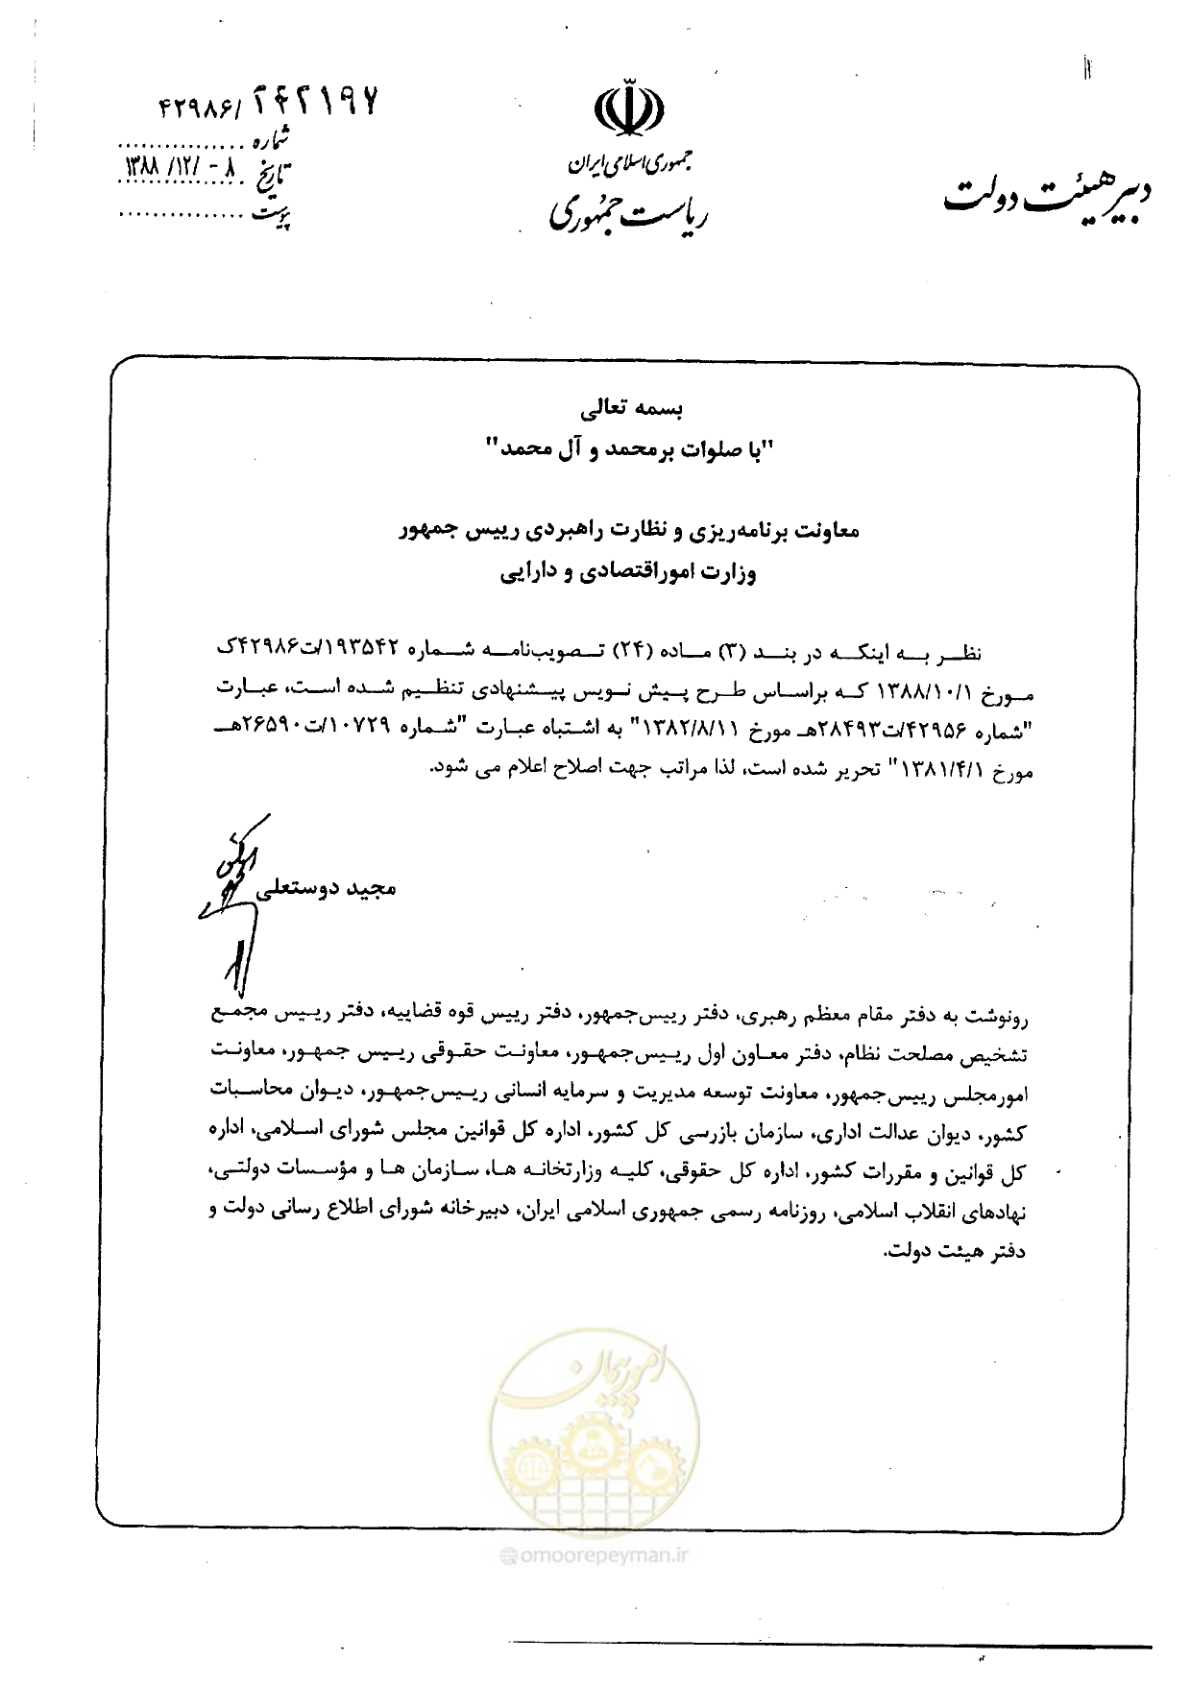 ۴۲۹۸۶/۲۴۲۱۹۷
شماره ................
تاریخ ۱۳۸۸/۱۲/-۸
پیوست ................
جمهوری اسلامی ایران
ریاست جمهوری
دبیر هیئت دولت
بسمه تعالی
"با صلوات بر محمد و آل محمد"
معاونت برنامه‌ریزی و نظارت راهبردی رییس جمهور
وزارت امور اقتصادی و دارایی
نظر به اینکه در بند (۳) ماده (۲۴) تصویب‌نامه شماره ۱۹۳۵۴۲/ت۴۲۹۸۶ک
مورخ ۱۳۸۸/۱۰/۱ که براساس طرح پیش نویس پیشنهادی تنظیم شده است، عبارت
"شماره ۴۲۹۵۶/ت۲۸۴۹۳هـ مورخ ۱۳۸۲/۸/۱۱" به اشتباه عبارت "شماره ۱۰۷۲۹/ت۲۶۵۹۰هـ
مورخ ۱۳۸۱/۴/۱" تحریر شده است، لذا مراتب جهت اصلاح اعلام می شود.
مجید دوستعلی
رونوشت به دفتر مقام معظم رهبری، دفتر رییس‌جمهور، دفتر رییس قوه قضاییه، دفتر رییس مجمع
تشخیص مصلحت نظام، دفتر معاون اول رییس‌جمهور، معاونت حقوقی رییس جمهور، معاونت
امورمجلس رییس‌جمهور، معاونت توسعه مدیریت و سرمایه انسانی رییس‌جمهور، دیوان محاسبات
کشور، دیوان عدالت اداری، سازمان بازرسی کل کشور، اداره کل قوانین مجلس شورای اسلامی، اداره
کل قوانین و مقررات کشور، اداره کل حقوقی، کلیه وزارتخانه ها، سازمان ها و مؤسسات دولتی،
نهادهای انقلاب اسلامی، روزنامه رسمی جمهوری اسلامی ایران، دبیرخانه شورای اطلاع رسانی دولت و
دفتر هیئت دولت.
امور پیمان
@omoorepeyman.ir